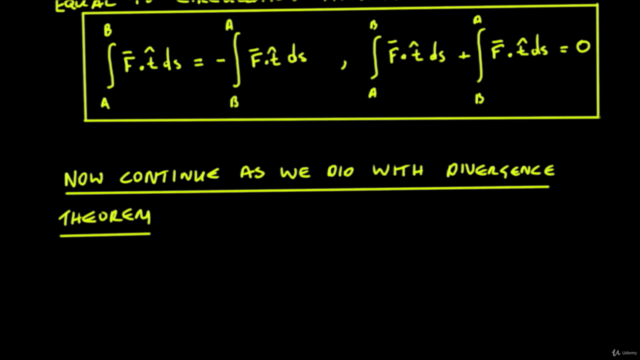 EQUAL TO
∫_A^B F̄·t̂ ds = -∫_B^A F̄·t̂ ds , ∫_A^B F̄·t̂ ds + ∫_B^A F̄·t̂ ds = 0
NOW CONTINUE AS WE DID WITH DIVERGENCE
THEOREM
Udemy